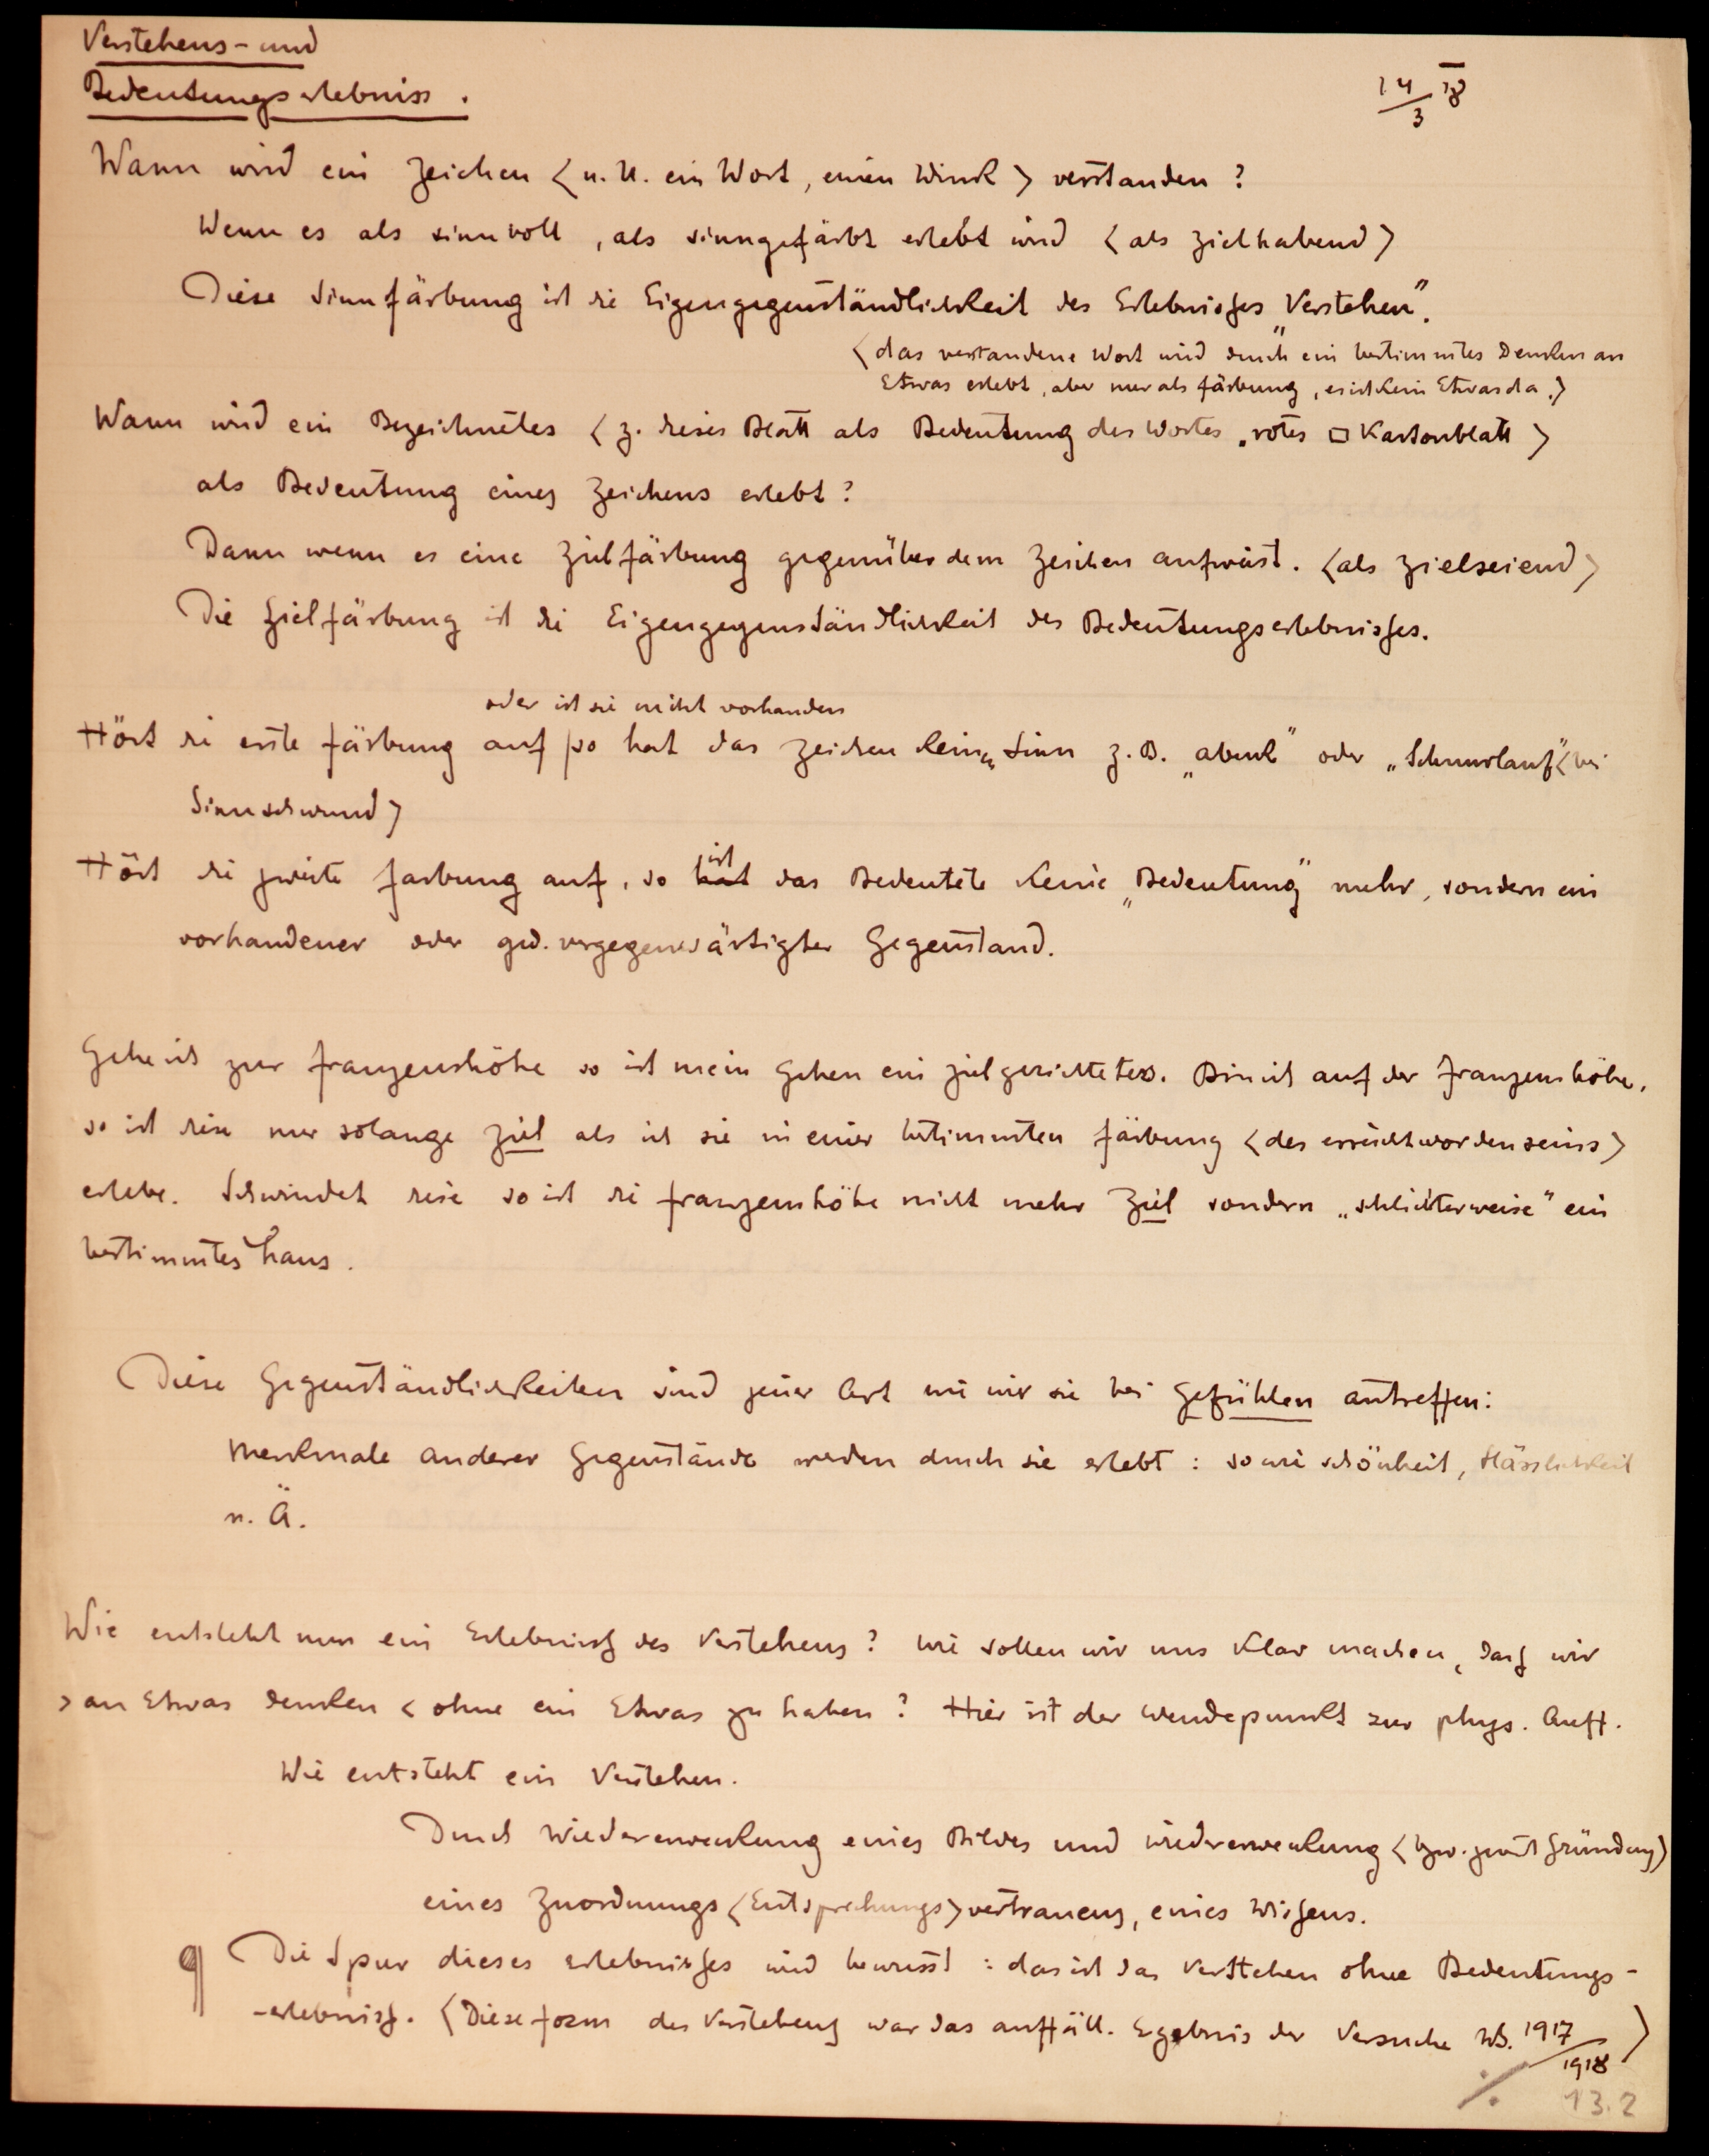 Verstehens- und
Bedeutungserlebniss.
14/3 18
Wann wird ein Zeichen <u. U. ein Wort, einen Wink> verstanden?
Wenn es als sinnvoll, als sinngefärbt erlebt wird <als zielhabend>
Diese Sinnfärbung ist die Eigengegenständlichkeit des Erlebnisses „Verstehen".
<das verstandene Wort wird durch ein bestimmtes Denken an
Etwas erlebt, aber nur als färbung, es ist kein Etwas da.>
Wann wird ein Bezeichnetes <z. dieses Blatt als Bedeutung des Wortes „rotes □ Kartonblatt>
als Bedeutung eines Zeichens erlebt?
Dann wenn es eine Zielfärbung gegenüber dem Zeichen aufweist. <als zielseiend>
Die Zielfärbung ist die Eigengegenständlichkeit des Bedeutungserlebnisses.
oder ist sie nicht vorhanden
Hört die erste färbung auf so hat das Zeichen keinen Sinn z.B. „abend" oder „Schnurlauf" <bei
Sinnschwund>
Hört die zweite farbung auf, so hat ist das Bedeutete keine „Bedeutung" mehr, sondern ein
vorhandener oder ged. vergegenwärtigter Gegenstand.
Gehe ich zur franzenshöhe so ist mein Gehen ein zielgerichtetes. Bin ich auf der Franzenshöhe,
so ist diese nur solange Ziel als ich sie in einer bestimmten färbung <des erreichtwordenseins>
erlebe. Schwindet diese so ist die franzenshöhe nicht mehr Ziel sondern „schlichterweise" ein
bestimmtes haus.
Diese Gegenständlichkeiten sind jener Art wie wir sie bei Gefühlen antreffen:
Merkmale anderer Gegenstände werden durch sie erlebt: sowie schönheit, Hässlichkeit
u. Ä.
Wie entsteht nun ein Erlebniss des Verstehens? Wie sollen wir uns klar machen, dass wir
>an Etwas denken< ohne ein Etwas zu haben? Hier ist der Wendepunkt zur phys. Auff.
Wie entsteht ein Verstehen.
Durch Wiedererweckung eines Bildes und wiedererweckung <bzw. Gründung>
eines Zuordnungs<Entsprechungs>vertrauens, eines Wissens.
¶ Die Spur dieses erlebnisses wird bewusst: das ist das Verstehen ohne Bedeutungs-
-erlebniss. <Diese form des Verstehens war das auffäll. Ergebnis der Versuche WS. 1917/1918>
./. 13.2